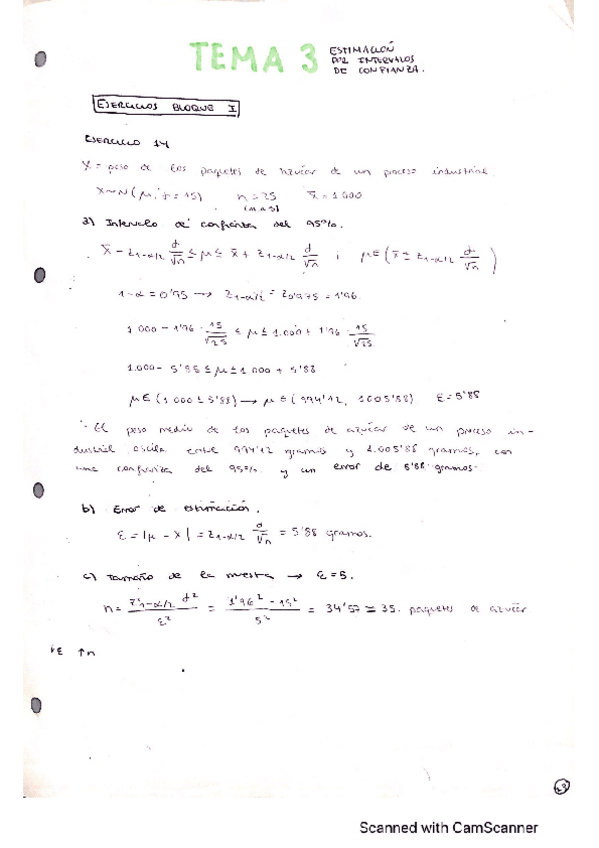 TEMA 3 ESTIMACIÓN
POR INTERVALOS
DE CONFIANZA.
EJERCICIOS BLOQUE I
EJERCICIO 14
X = peso de los paquetes de azúcar de un proceso industrial
X~N(μ, σ = 15) n = 25 x̄ = 1000
(m.a.s)
a) Intervalo de confianza del 95%.
x̄ - z1-α/2 σ/√n ≤ μ ≤ x̄ + z1-α/2 σ/√n ; μ ∈ (x̄ ± z1-α/2 σ/√n)
1-α = 0'95 → z1-α/2 = z0'975 = 1'96
1.000 - 1'96 · 15/√25 ≤ μ ≤ 1.000 + 1'96 · 15/√25
1.000 - 5'88 ≤ μ ≤ 1.000 + 5'88
μ ∈ (1000 ± 5'88) → μ ∈ (994'12, 1005'88) ε = 5'88
· El peso medio de los paquetes de azúcar de un proceso in-
dustrial oscila entre 994'12 gramos y 1.005'88 gramos, con
una confianza del 95% y un error de 5'88 gramos.
b) Error de estimación.
ε = |μ - x̄| = z1-α/2 σ/√n = 5'88 gramos.
c) Tamaño de la muestra → ε = 5.
n = z²1-α/2 σ² / ε² = 1'96² · 15² / 5² = 34'57 ≃ 35. paquetes de azúcar
↓ε ↑n
Scanned with CamScanner